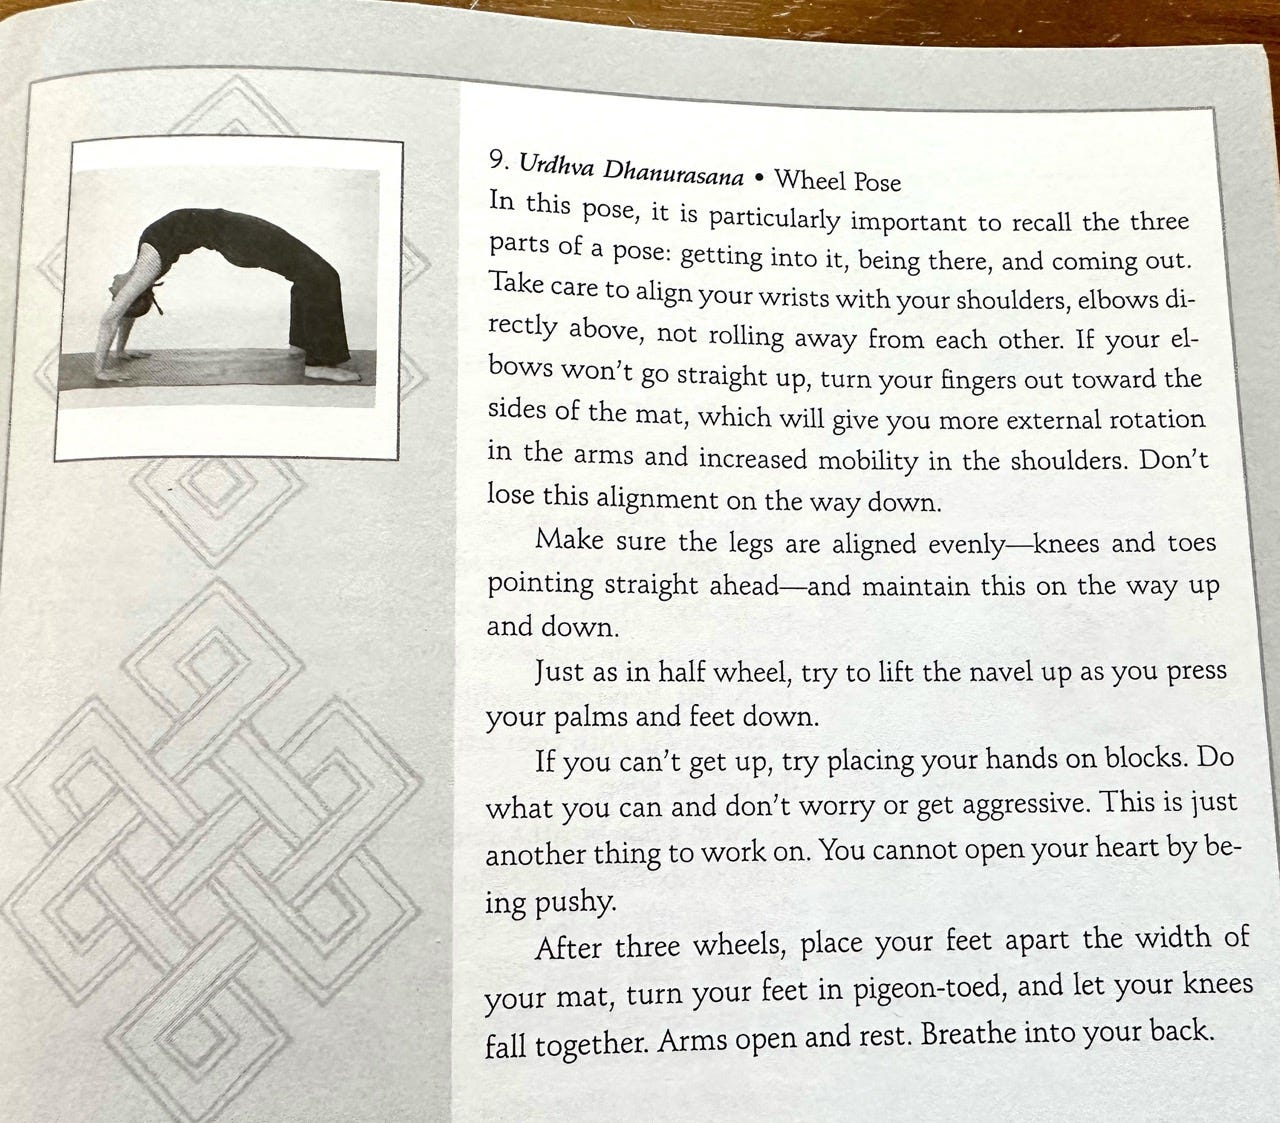 9. Urdhva Dhanurasana • Wheel Pose
In this pose, it is particularly important to recall the three
parts of a pose: getting into it, being there, and coming out.
Take care to align your wrists with your shoulders, elbows di-
rectly above, not rolling away from each other. If your el-
bows won't go straight up, turn your fingers out toward the
sides of the mat, which will give you more external rotation
in the arms and increased mobility in the shoulders. Don't
lose this alignment on the way down.
Make sure the legs are aligned evenly—knees and toes
pointing straight ahead—and maintain this on the way up
and down.
Just as in half wheel, try to lift the navel up as you press
your palms and feet down.
If you can't get up, try placing your hands on blocks. Do
what you can and don't worry or get aggressive. This is just
another thing to work on. You cannot open your heart by be-
ing pushy.
After three wheels, place your feet apart the width of
your mat, turn your feet in pigeon-toed, and let your knees
fall together. Arms open and rest. Breathe into your back.